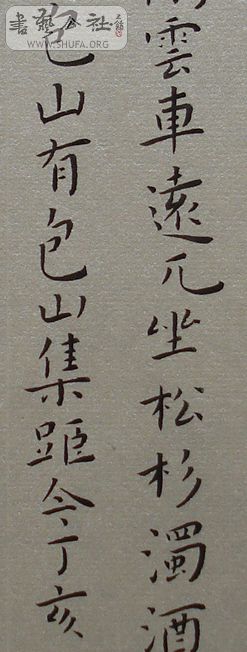 雲車遠兀坐松杉濁酒
包山有包山集距今丁亥
書藝公社
WWW.SHUFA.ORG